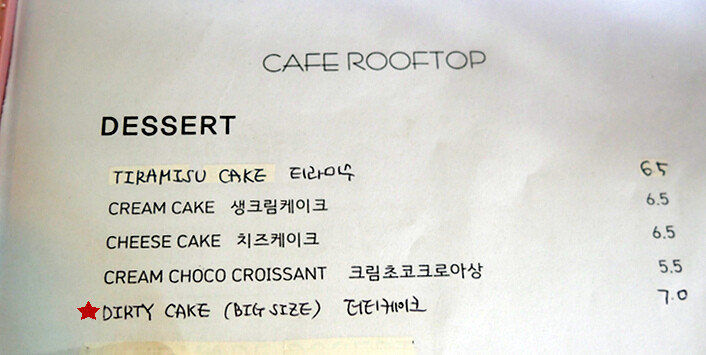 CAFE ROOFTOP
DESSERT
TIRAMISU CAKE 티라미수 6.5
CREAM CAKE 생크림케이크 6.5
CHEESE CAKE 치즈케이크 6.5
CREAM CHOCO CROISSANT 크림초코크로아상 5.5
DIRTY CAKE (BIG SIZE) 더티케이크 7.0